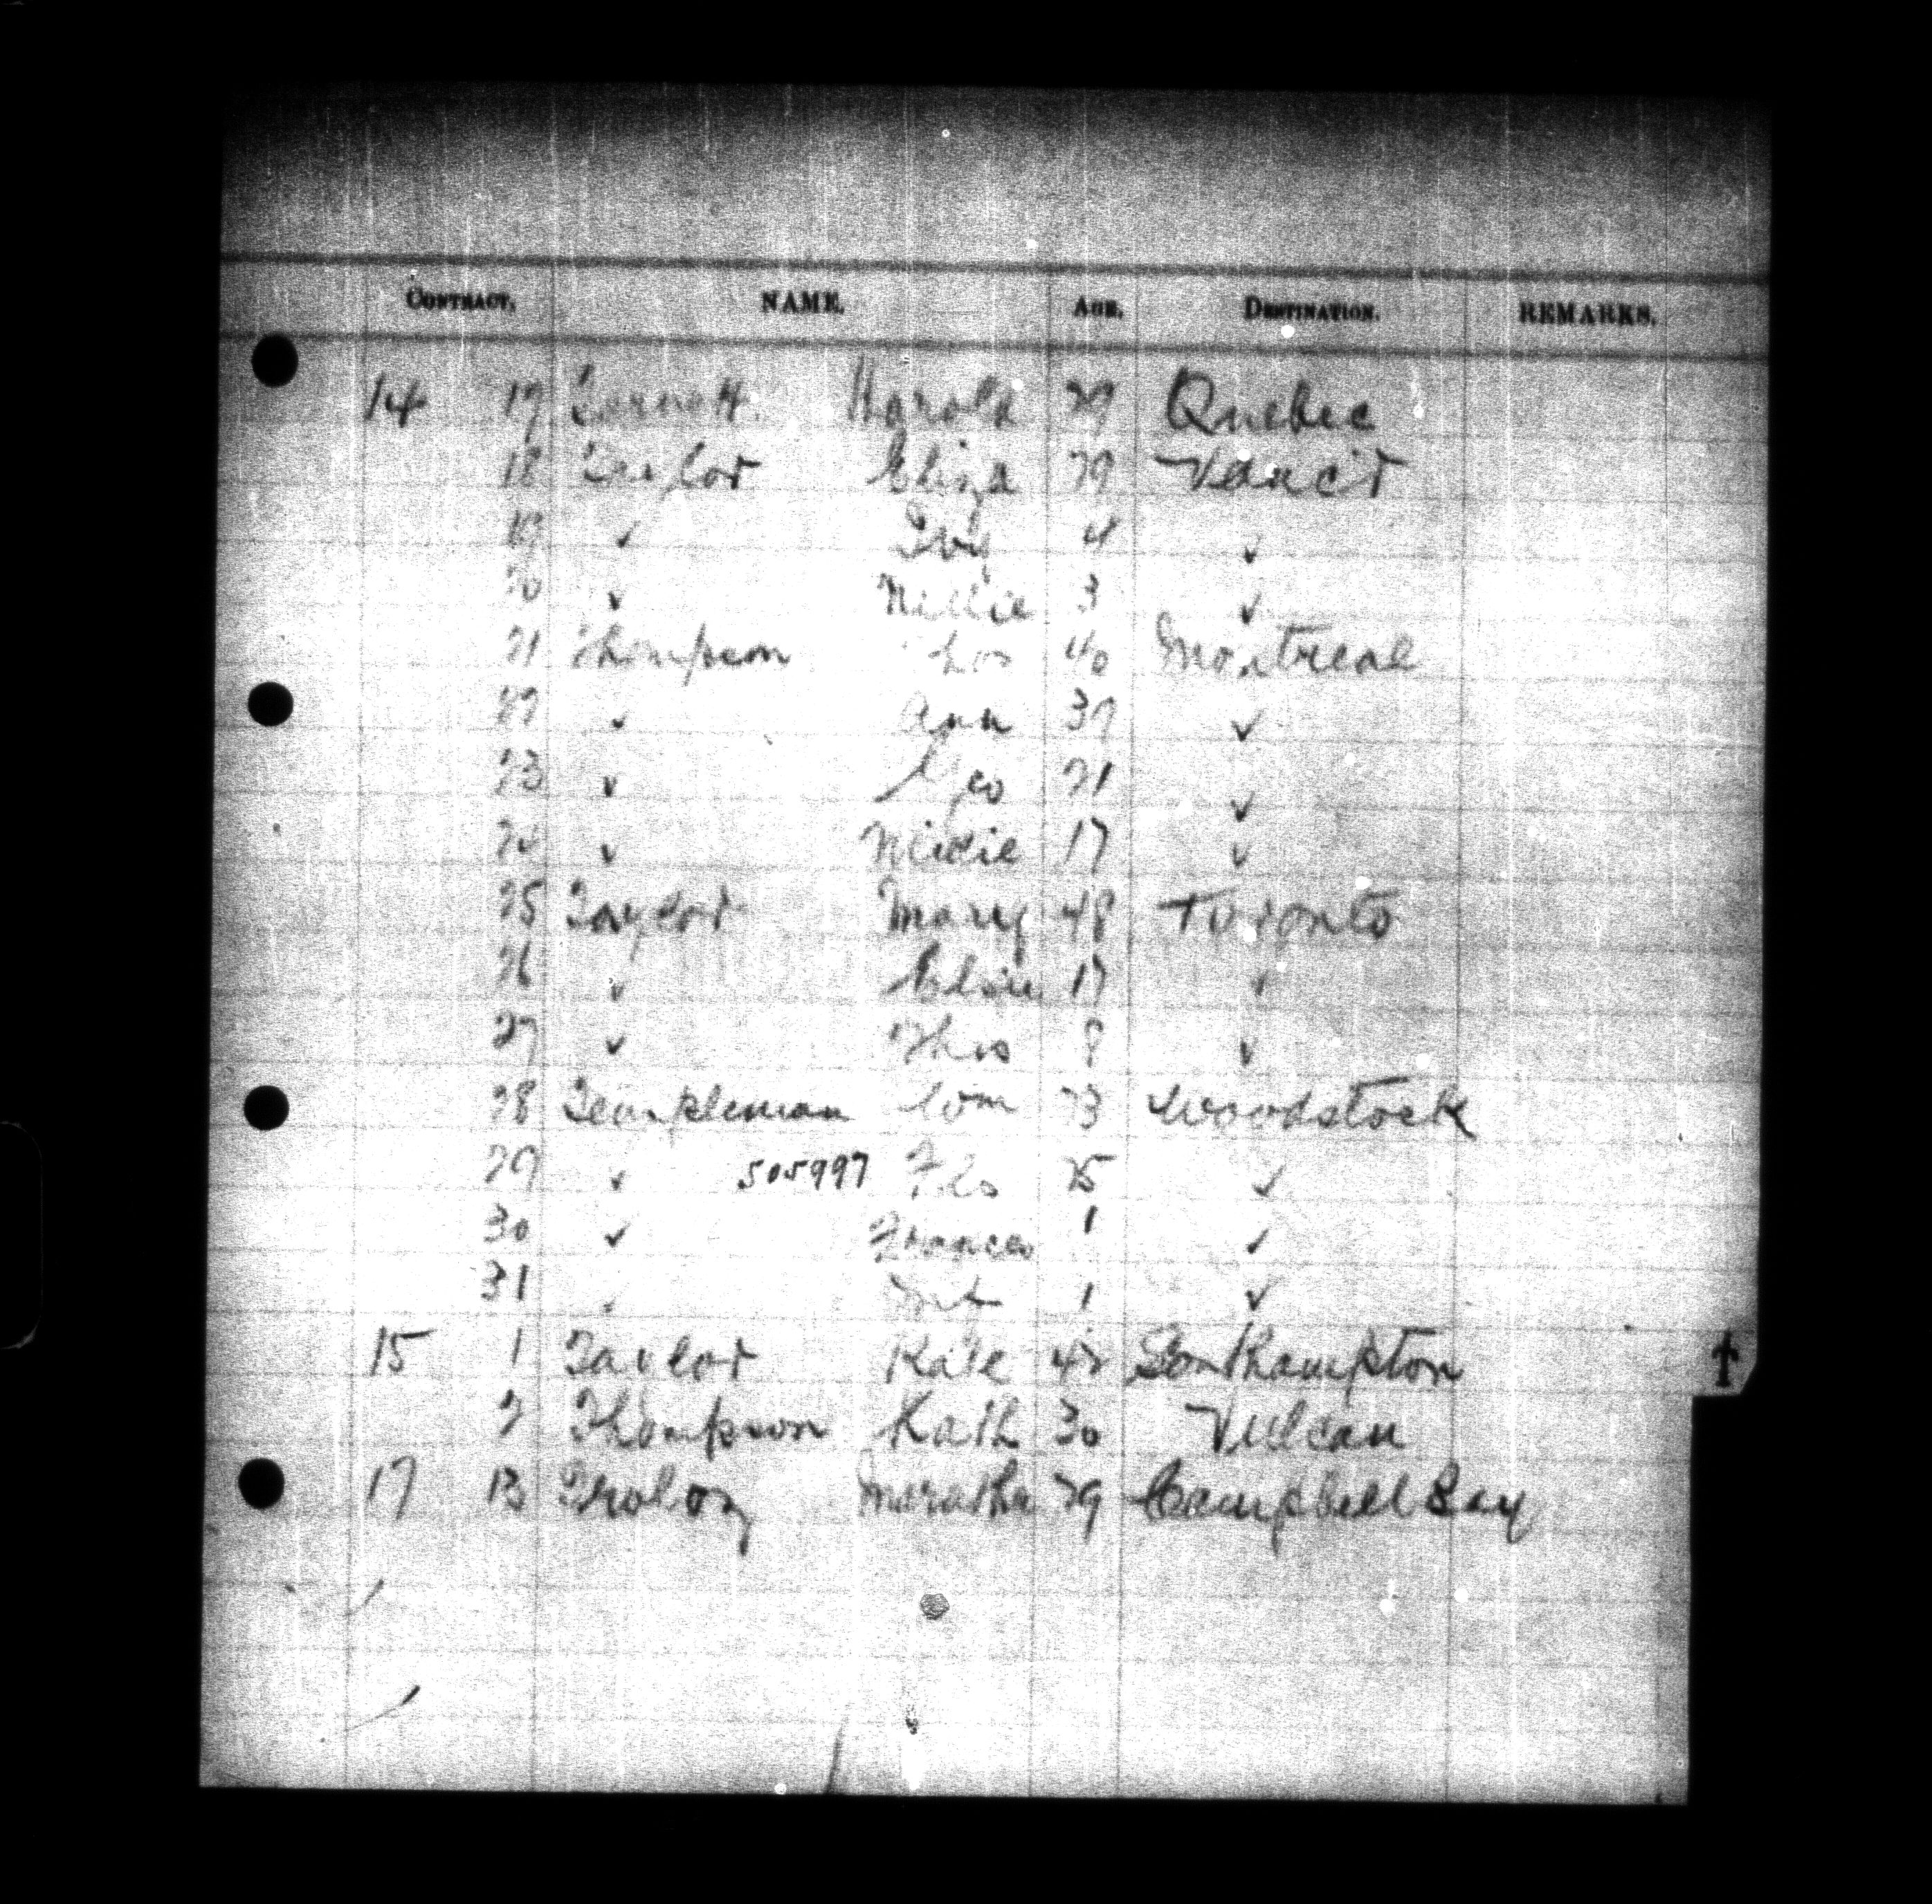 CONTRACT. NAME. AGE. DESTINATION. REMARKS.
14 17 Harold 29 Quebec
18 Taylor Eliza 29 Vanc'r
19 ✓ Ivy 4 ✓
20 ✓ Nellie 3 ✓
21 Thompson Thos 40 Montreal
22 ✓ Ann 39 ✓
23 ✓ Geo 21 ✓
24 ✓ 17 ✓
25 Taylor Mary 48 Toronto
26 ✓ Elsie 17 ✓
27 ✓ Thos 8 ✓
28 Templeman Wm 23 Woodstock
29 ✓ 505997 Flo 25 ✓
30 ✓ Frances 1 ✓
31 ✓ Inft 1 ✓
15 1 Taylor Kate Southampton
2 Thompson Kath 30 Vulcan
17 13 29 Campbell Bay
T